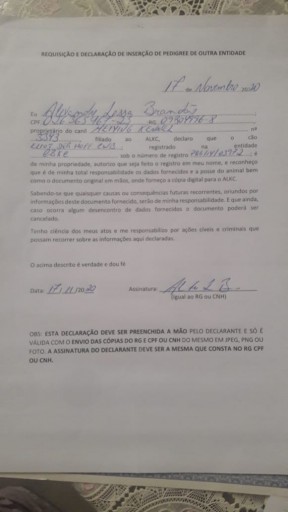 REQUISIÇÃO E DECLARAÇÃO DE INSERÇÃO DE PEDIGREE DE OUTRA ENTIDADE
17 de Novembro 2020
Eu Alexandre Brandão
CPF RG
proprietário do canil nº
filiado ao ALKC, declaro que o cão
registrado na entidade
sob o número de registro é
da minha propriedade, autorizo que seja feito o registro em meu nome, e reconheço
que é da minha total responsabilidade os dados fornecidos e a posse do animal bem
como o documento original em mãos, onde forneço a cópia digital para o ALKC.
Sabendo-se que quaisquer causas ou consequências futuras recorrentes, oriundos por
informações deste documento fornecido, serão de minha responsabilidade. E que ainda,
caso ocorra algum desencontro de dados fornecidos o documento poderá ser
cancelado.
Tenho ciência dos meus atos e me responsabilizo por ações cíveis e criminais que
possam recorrer sobre as informações aqui declaradas.
O acima descrito é verdade e dou fé
Data: 17/11/2020 Assinatura:
(igual ao RG ou CNH)
OBS: ESTA DECLARAÇÃO DEVE SER PREENCHIDA A MÃO PELO DECLARANTE E SÓ É
VÁLIDA COM O ENVIO DAS CÓPIAS DO RG E CPF OU CNH DO MESMO EM JPEG, PNG OU
FOTO. A ASSINATURA DO DECLARANTE DEVE SER A MESMA QUE CONSTA NO RG CPF
OU CNH.